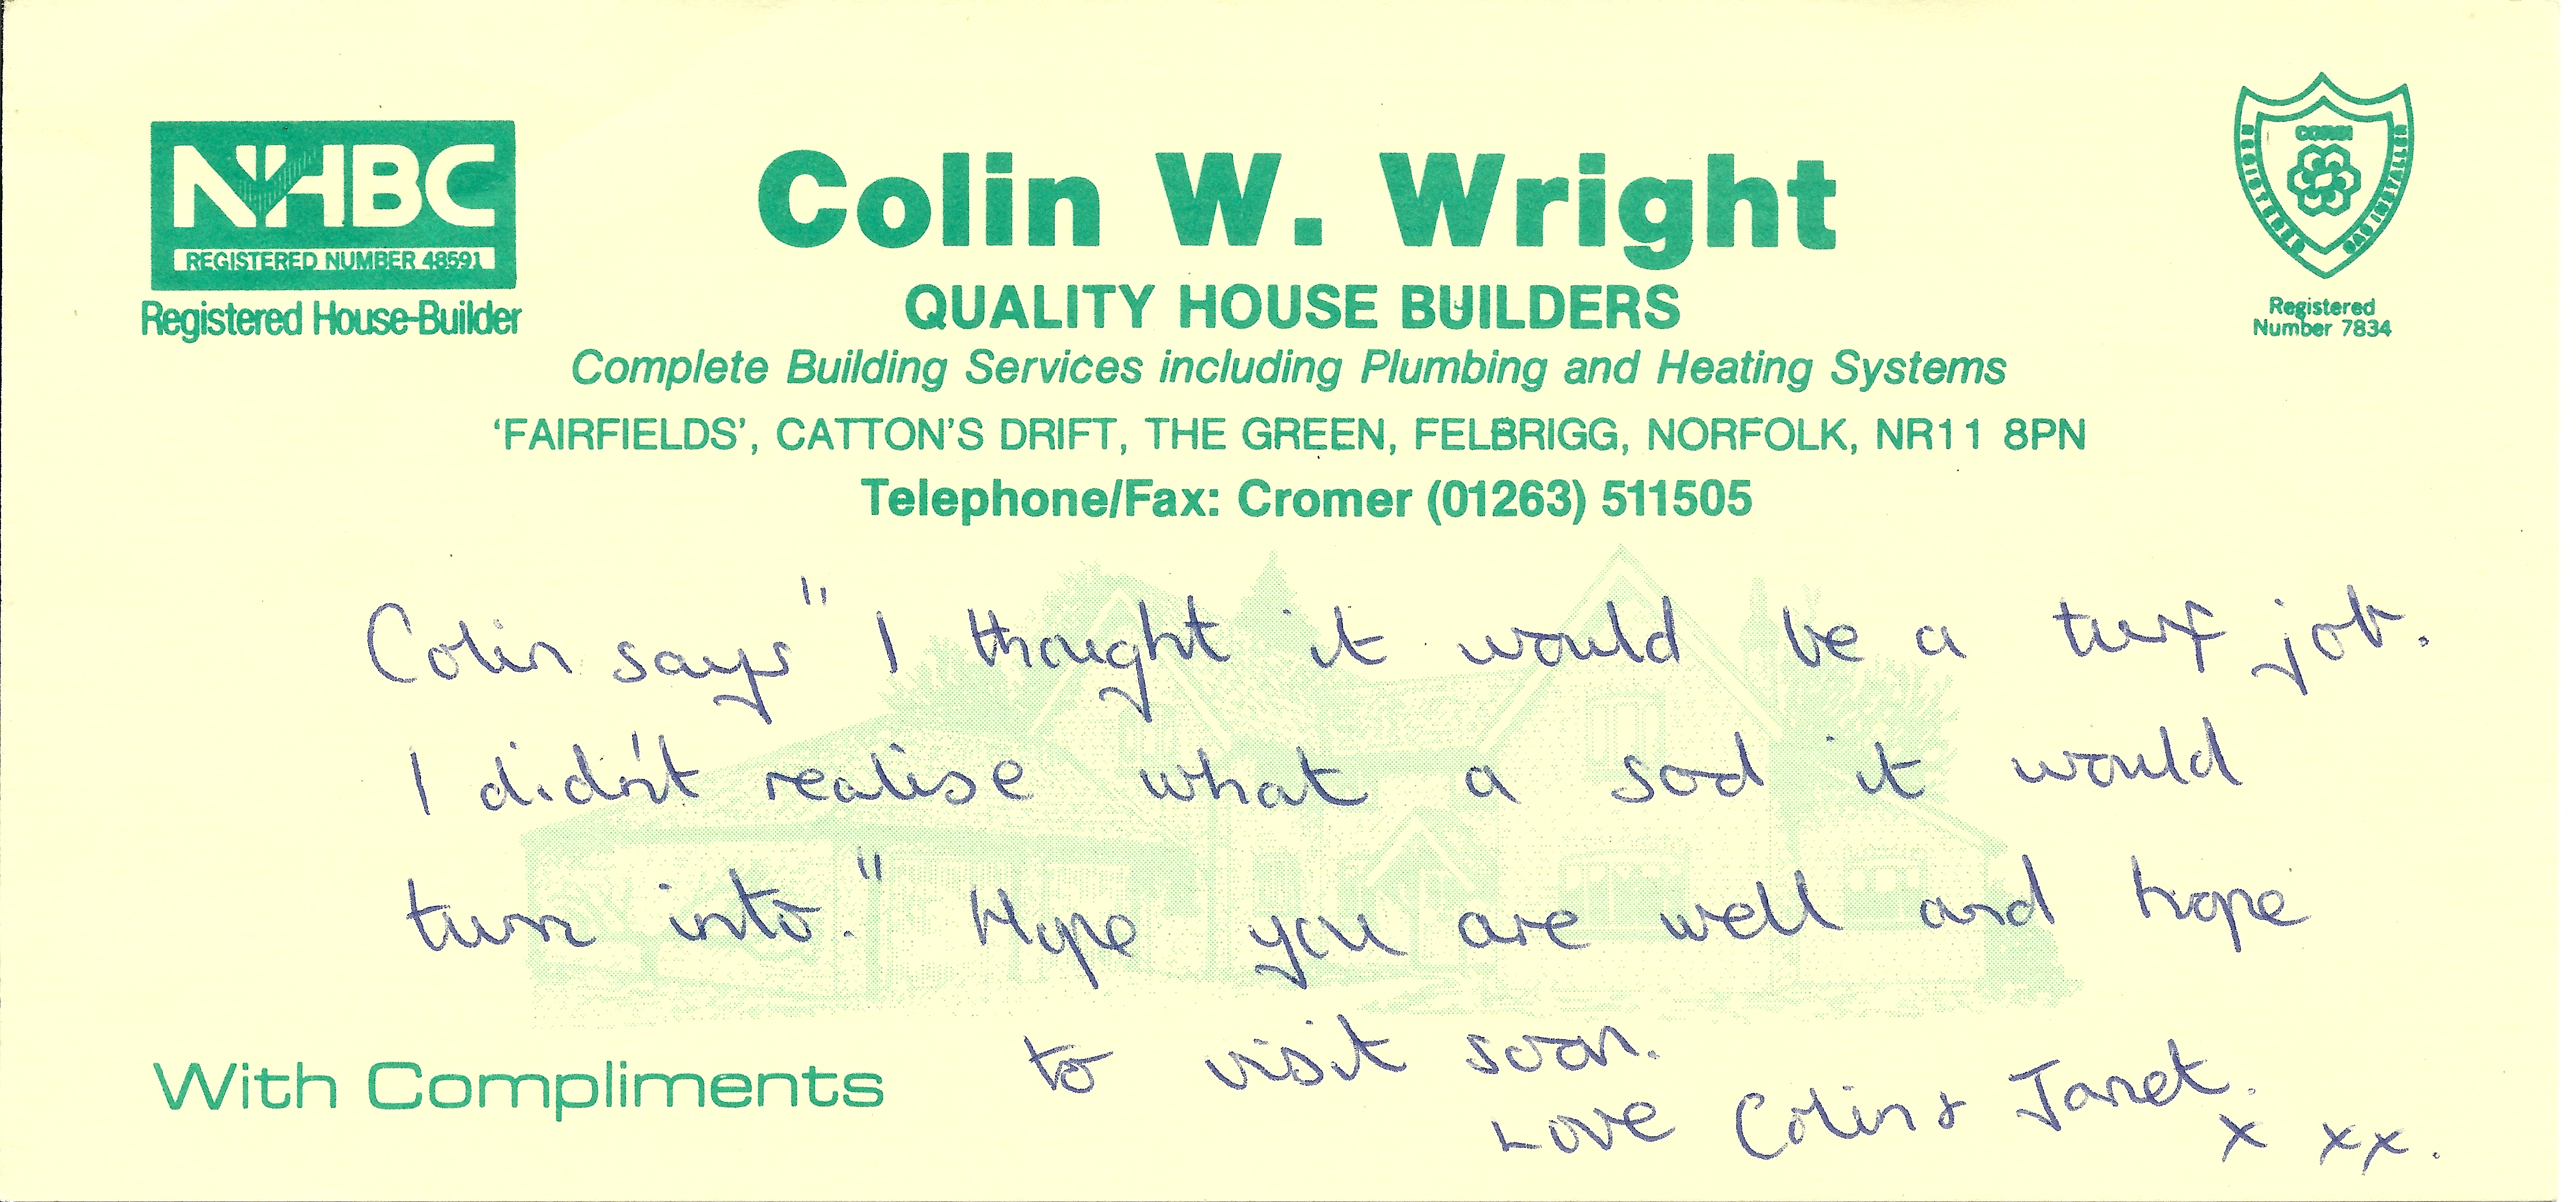 NHBC
REGISTERED NUMBER 48591
Registered House-Builder
Colin W. Wright
QUALITY HOUSE BUILDERS
Complete Building Services including Plumbing and Heating Systems
'FAIRFIELDS', CATTON'S DRIFT, THE GREEN, FELBRIGG, NORFOLK, NR11 8PN
Telephone/Fax: Cromer (01263) 511505
CORGI
REGISTERED GAS INSTALLER
Registered
Number 7834
Colin says "I thought it would be a turf job.
I didn't realise what a sod it would
turn into." Hope you are well and hope
to visit soon.
Love Colin & Janet.
x xx.
With Compliments